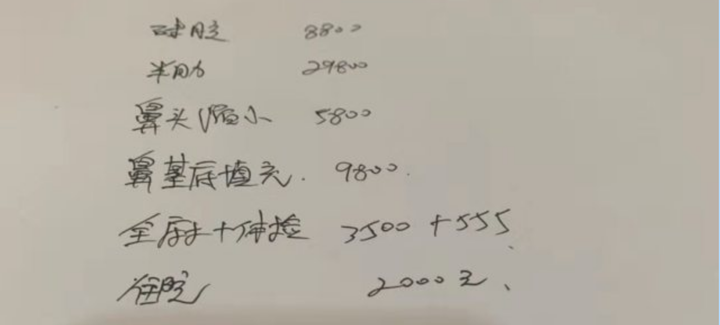 球膨 8800
半肋 29800
鼻头缩小 5800
鼻基底填充. 9800.
全麻+体检 3500+555、
住院 2000元、